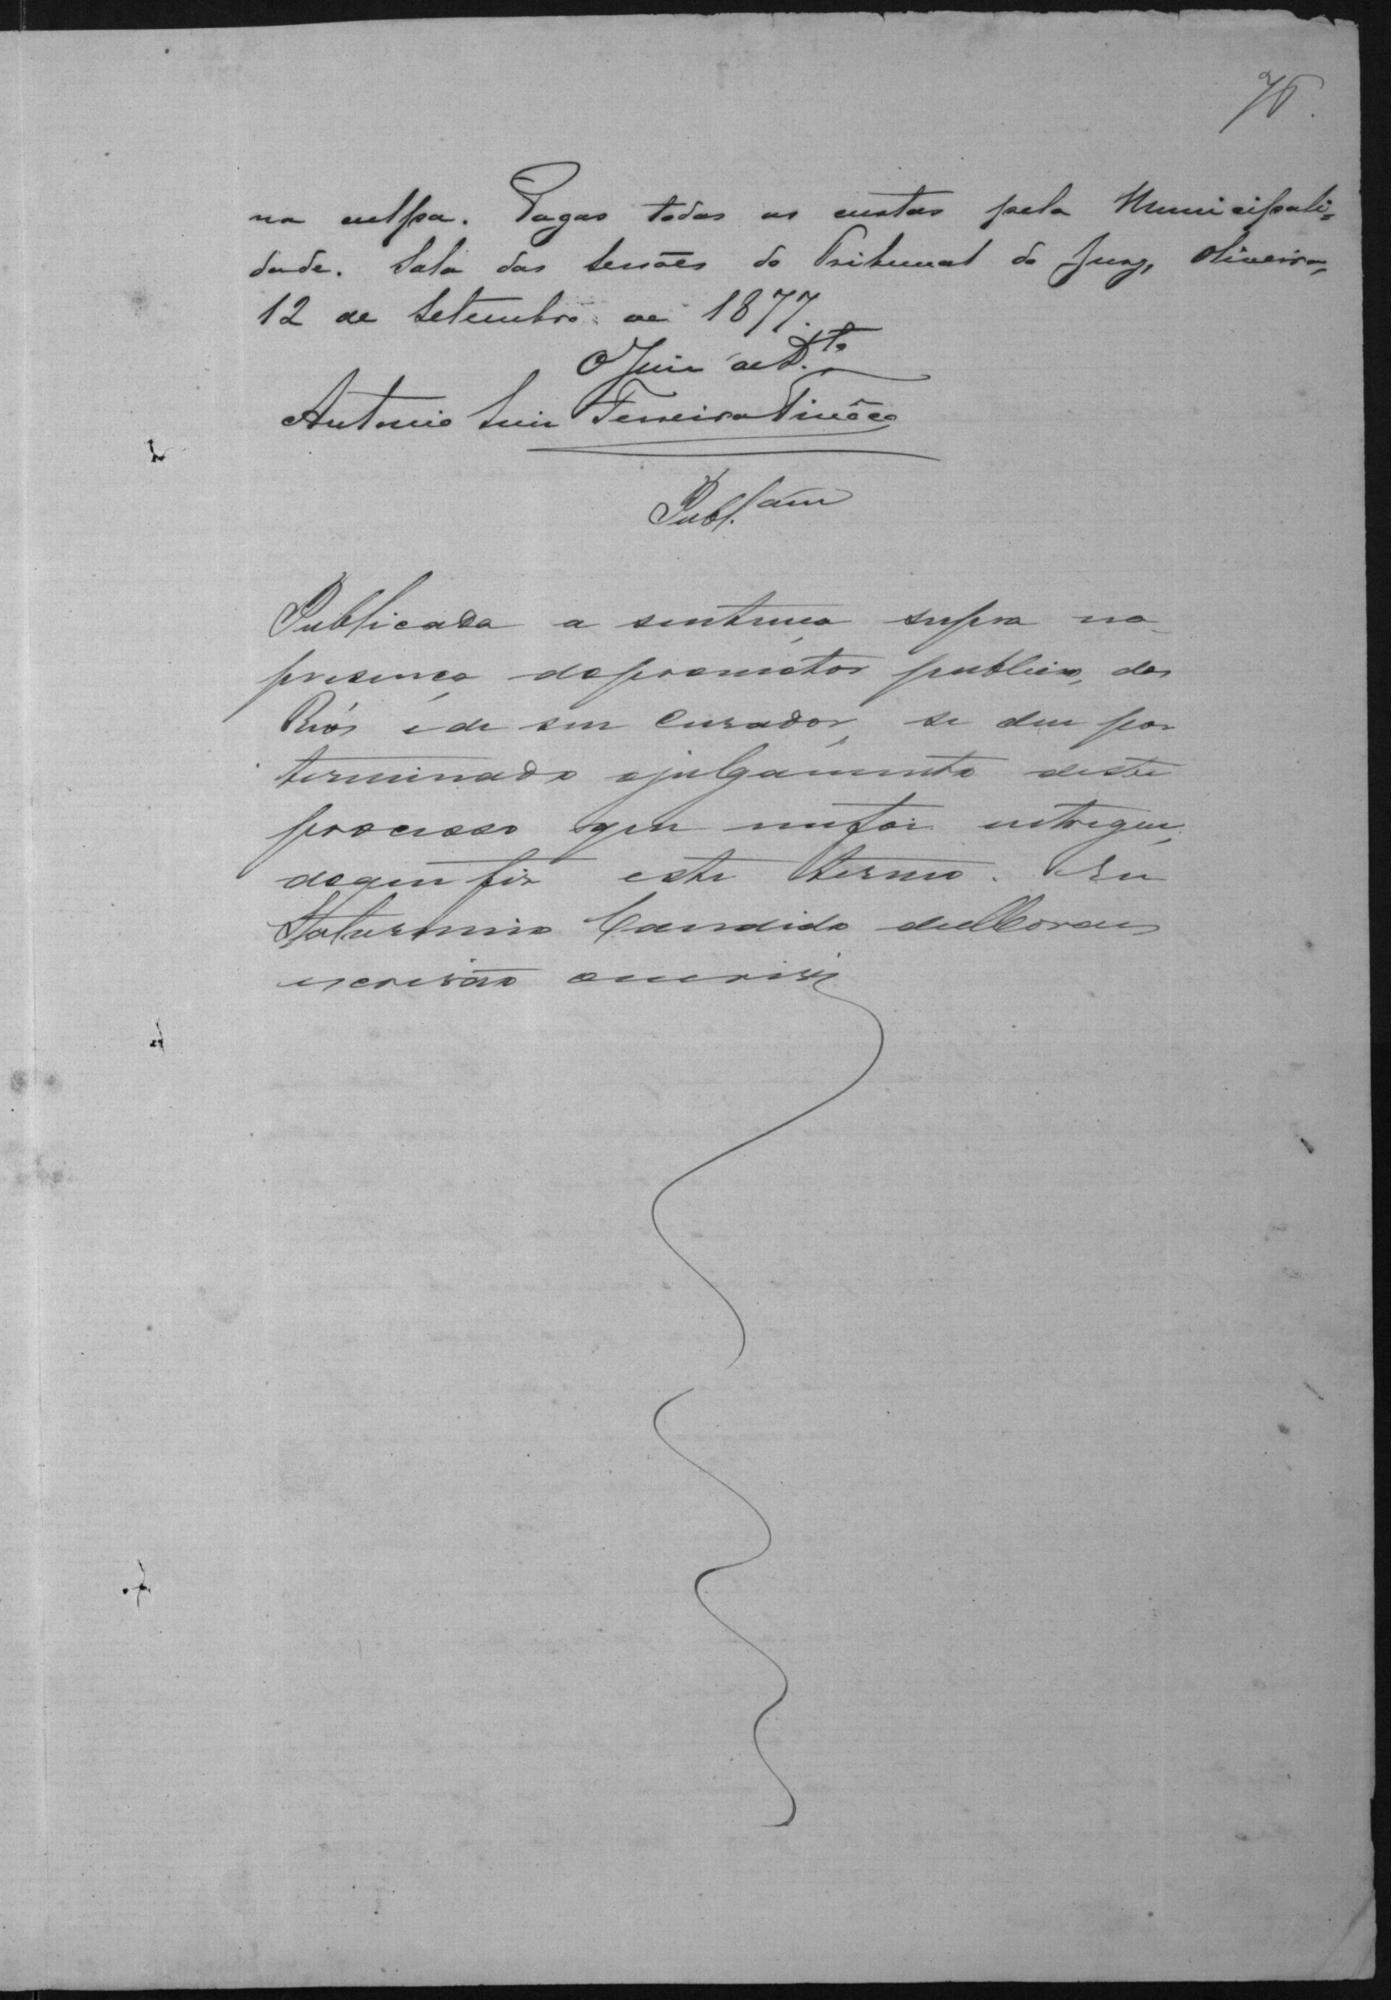 76.
na culpa. Pagas todas as custas pela Municipali=
dade. Sala das Sessões do Tribunal do Jury, Oliveira,
12 de Setembro de 1877.
O Juiz de D.to
Antonio Luiz Ferreira Tinôco
Publ.am
Publicada a sentença supra na
presença do promotor publico, dos
Réos e de seu Curador, se deu por
terminado o julgamento deste
processo que me foi entregue,
do que fiz este termo. Eu
Saturnino Candido de Moraes
escrivão o escrevi